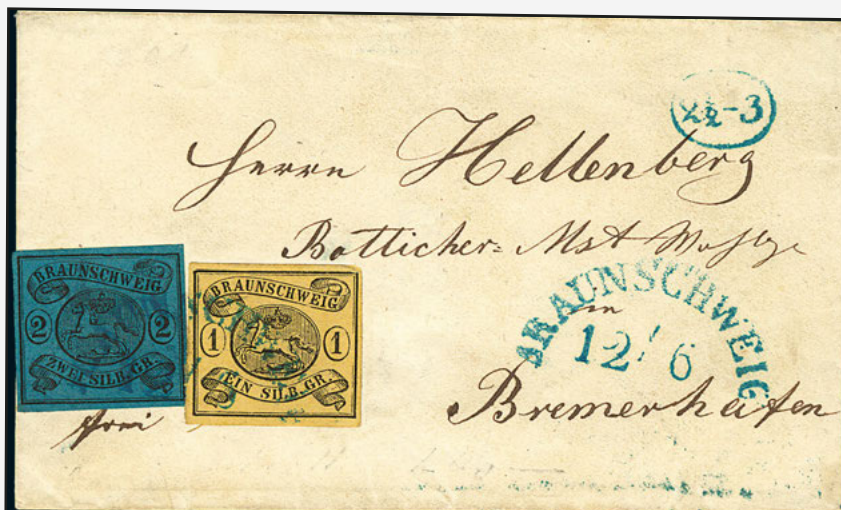 2½-3
Herrn Hellenberg
Bötticher-Mst
BRAUNSCHWEIG
12/6
in
Bremerhafen
BRAUNSCHWEIG
2 2
ZWEI SILB. GR.
BRAUNSCHWEIG
1 1
EIN SILB. GR.
frei